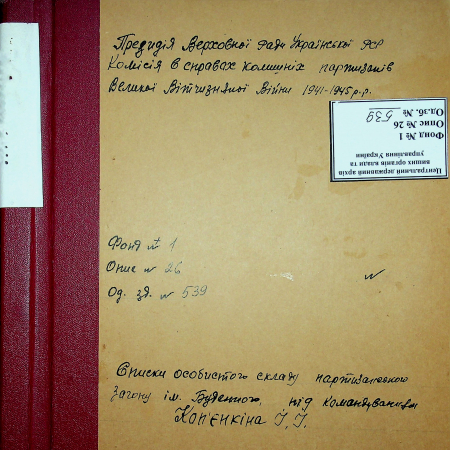 Президія Верховної Ради Української РСР
Комісія в справах колишніх партизанів
Великої Вітчизняної Війни 1941-1945 р.р.
Центральний державний архів
вищих органів влади та
управління України
Фонд № 1
Опис № 26
Од.зб. № 539
Фонд № 1
Опис № 26
Од. зб. № 539
Списки особистого складу партизанського
загону ім. Буденного, під командуванням
Коп'єнкіна І. І.